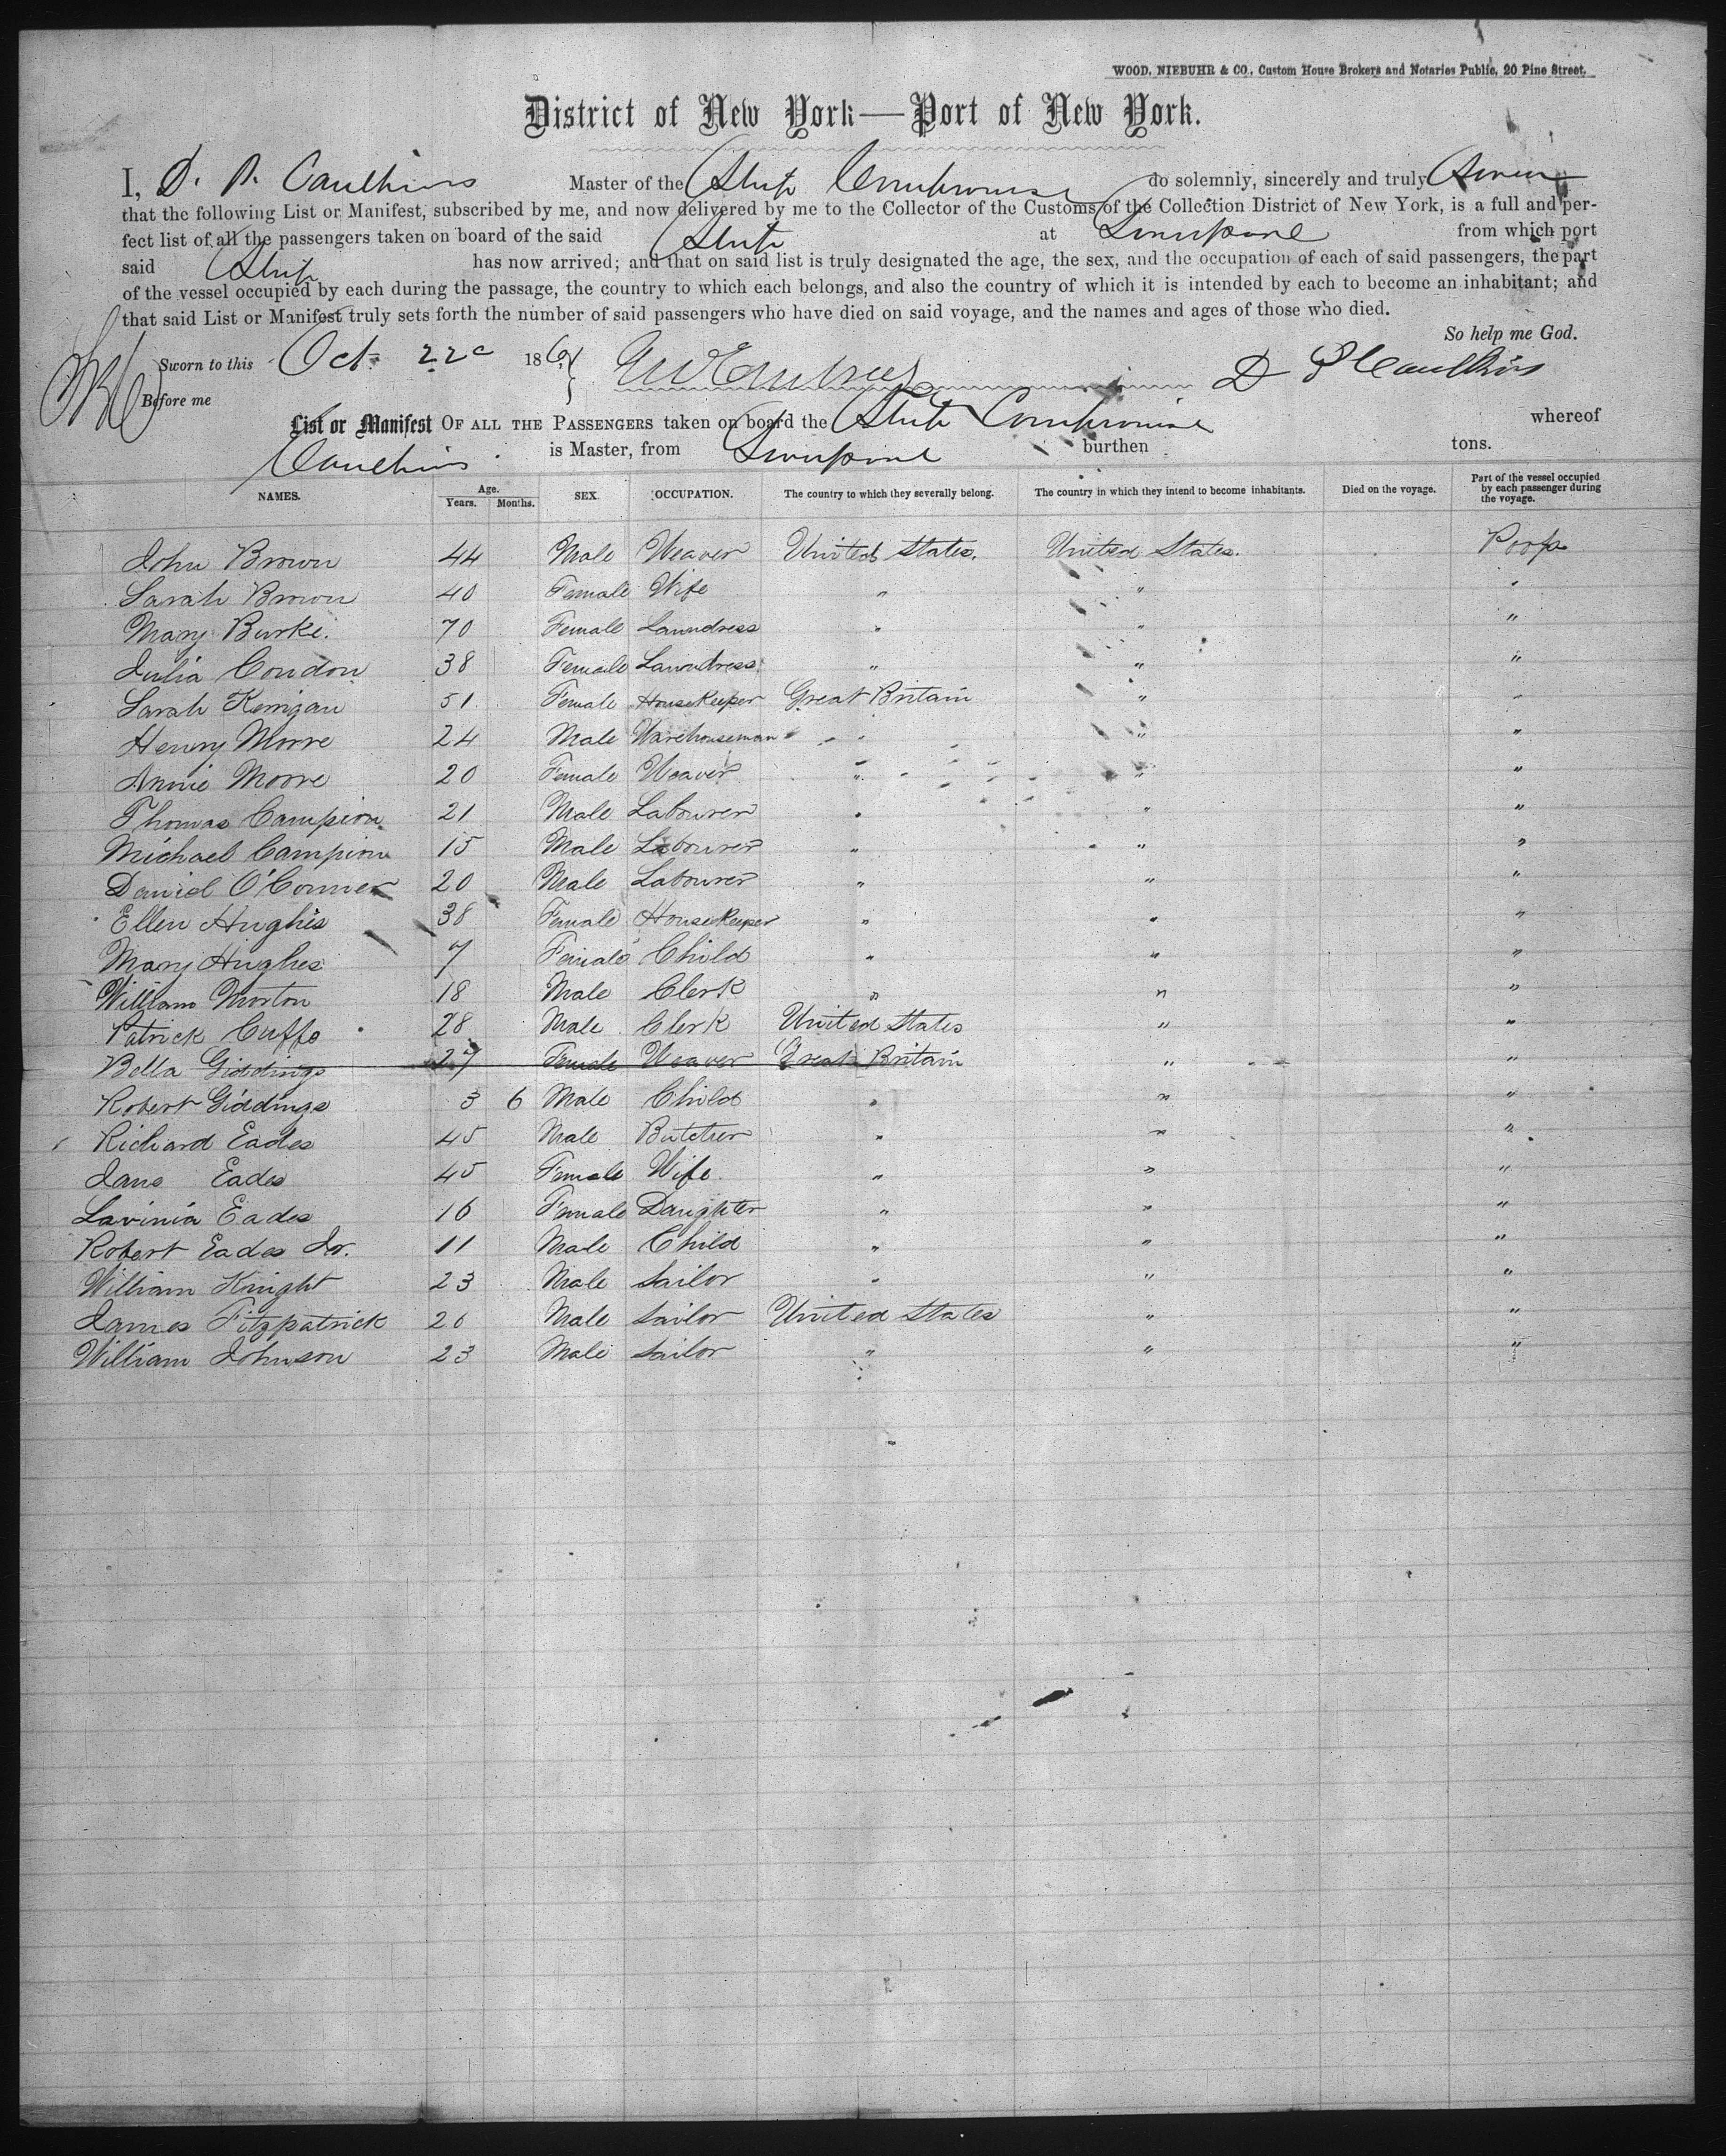 WOOD, NIEBUHR & CO., Custom House Brokers and Notaries Public, 20 Pine Street.
District of New York—Port of New York.
I, D. P. Caulkins Master of the Ship Compromise do solemnly, sincerely and truly Swear
that the following List or Manifest, subscribed by me, and now delivered by me to the Collector of the Customs of the Collection District of New York, is a full and per-
fect list of all the passengers taken on board of the said Ship at Liverpool from which port
said Ship has now arrived; and that on said list is truly designated the age, the sex, and the occupation of each of said passengers, the part
of the vessel occupied by each during the passage, the country to which each belongs, and also the country of which it is intended by each to become an inhabitant; and
that said List or Manifest truly sets forth the number of said passengers who have died on said voyage, and the names and ages of those who died.
So help me God.
Sworn to this Oct 22 186 D P Caulkins
Before me
List or Manifest OF ALL THE PASSENGERS taken on board the Ship Compromise whereof
Caulkins is Master, from Liverpool burthen tons.
NAMES. Age. Years. Months. SEX. OCCUPATION. The country to which they severally belong. The country in which they intend to become inhabitants. Died on the voyage. Part of the vessel occupied by each passenger during the voyage.
John Brown 44 Male Weaver United States. United States. Poop
Sarah Brown 40 Female Wife " " "
Mary Burke. 70 Female Laundress " " "
Julia Condon 38 Female Laundress " " "
Sarah Kerrigan 51 Female Housekeeper Great Britain " "
Henry Moore 24 Male Warehouseman " " "
Annie Moore 20 Female Weaver " " "
Thomas Campion 21 Male Labourer " " "
Michael Campion 15 Male Labourer " " "
Daniel O'Conner 20 Male Labourer " " "
Ellen Hughes 38 Female Housekeeper " " "
Mary Hughes 7 Female Child " " "
William Morton 18 Male Clerk " " "
Patrick Cuffe 28 Male Clerk United States " "
Bella Giddings 27 Female Weaver Great Britain " "
Robert Giddings 3 6 Male Child " " "
Richard Eades 45 Male Butcher " " "
Jane Eades 45 Female Wife " " "
Lavinia Eades 16 Female Daughter " " "
Robert Eades Jr. 11 Male Child " " "
William Knight 23 Male Sailor " " "
James Fitzpatrick 26 Male Sailor United States " "
William Johnson 23 Male Sailor " " "